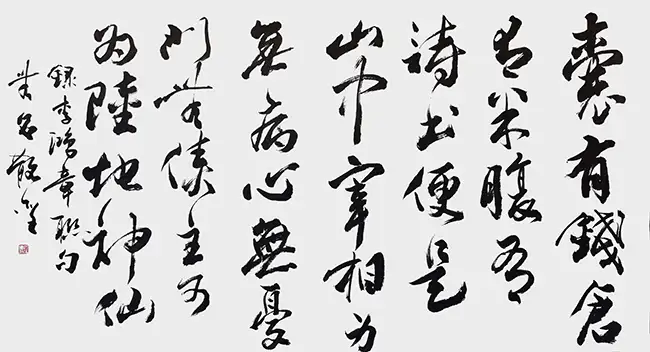 囊有錢倉
有米腹有
詩書便是
山中宰相身
無病心無憂
門無債主可
為陸地神仙
錄李鴻章聯句